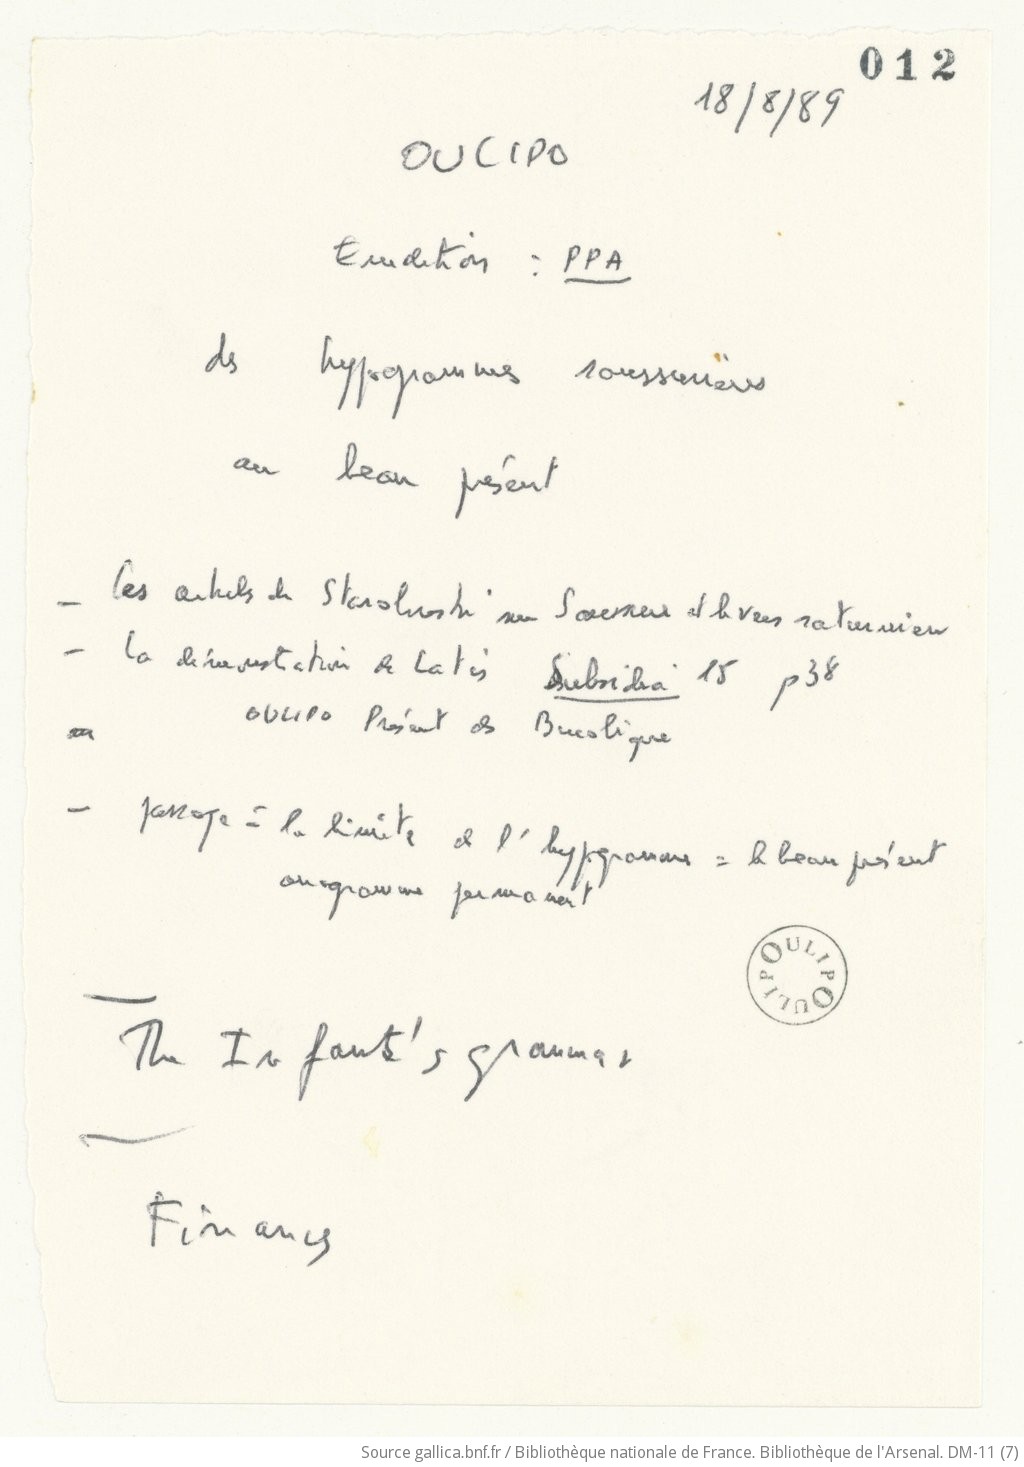 012
18/8/89
OULIPO
Erudition : PPA
des hypogrammes saussuriens
au beau présent
- Les articles de Starobinski sur Saussure et le vers saturnien
- La démonstration de Latis Subsidia 15 p38
OULIPO Présent de Bucolique
- passage à la limite de l'hypogramme = le beau présent
anagramme permanent
The Infant's grammar
Finances
OULIPOULIPO
Source gallica.bnf.fr / Bibliothèque nationale de France. Bibliothèque de l'Arsenal. DM-11 (7)